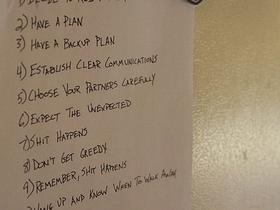 2) HAVE A PLAN
3) HAVE A BACKUP PLAN
4) ESTABLISH CLEAR COMMUNICATIONS
5) CHOOSE YOUR PARTNERS CAREFULLY
6) EXPECT THE UNEXPECTED
7) SHIT HAPPENS
8) DON'T GET GREEDY
9) REMEMBER, SHIT HAPPENS
UP AND KNOW WHEN TO WALK AWAY